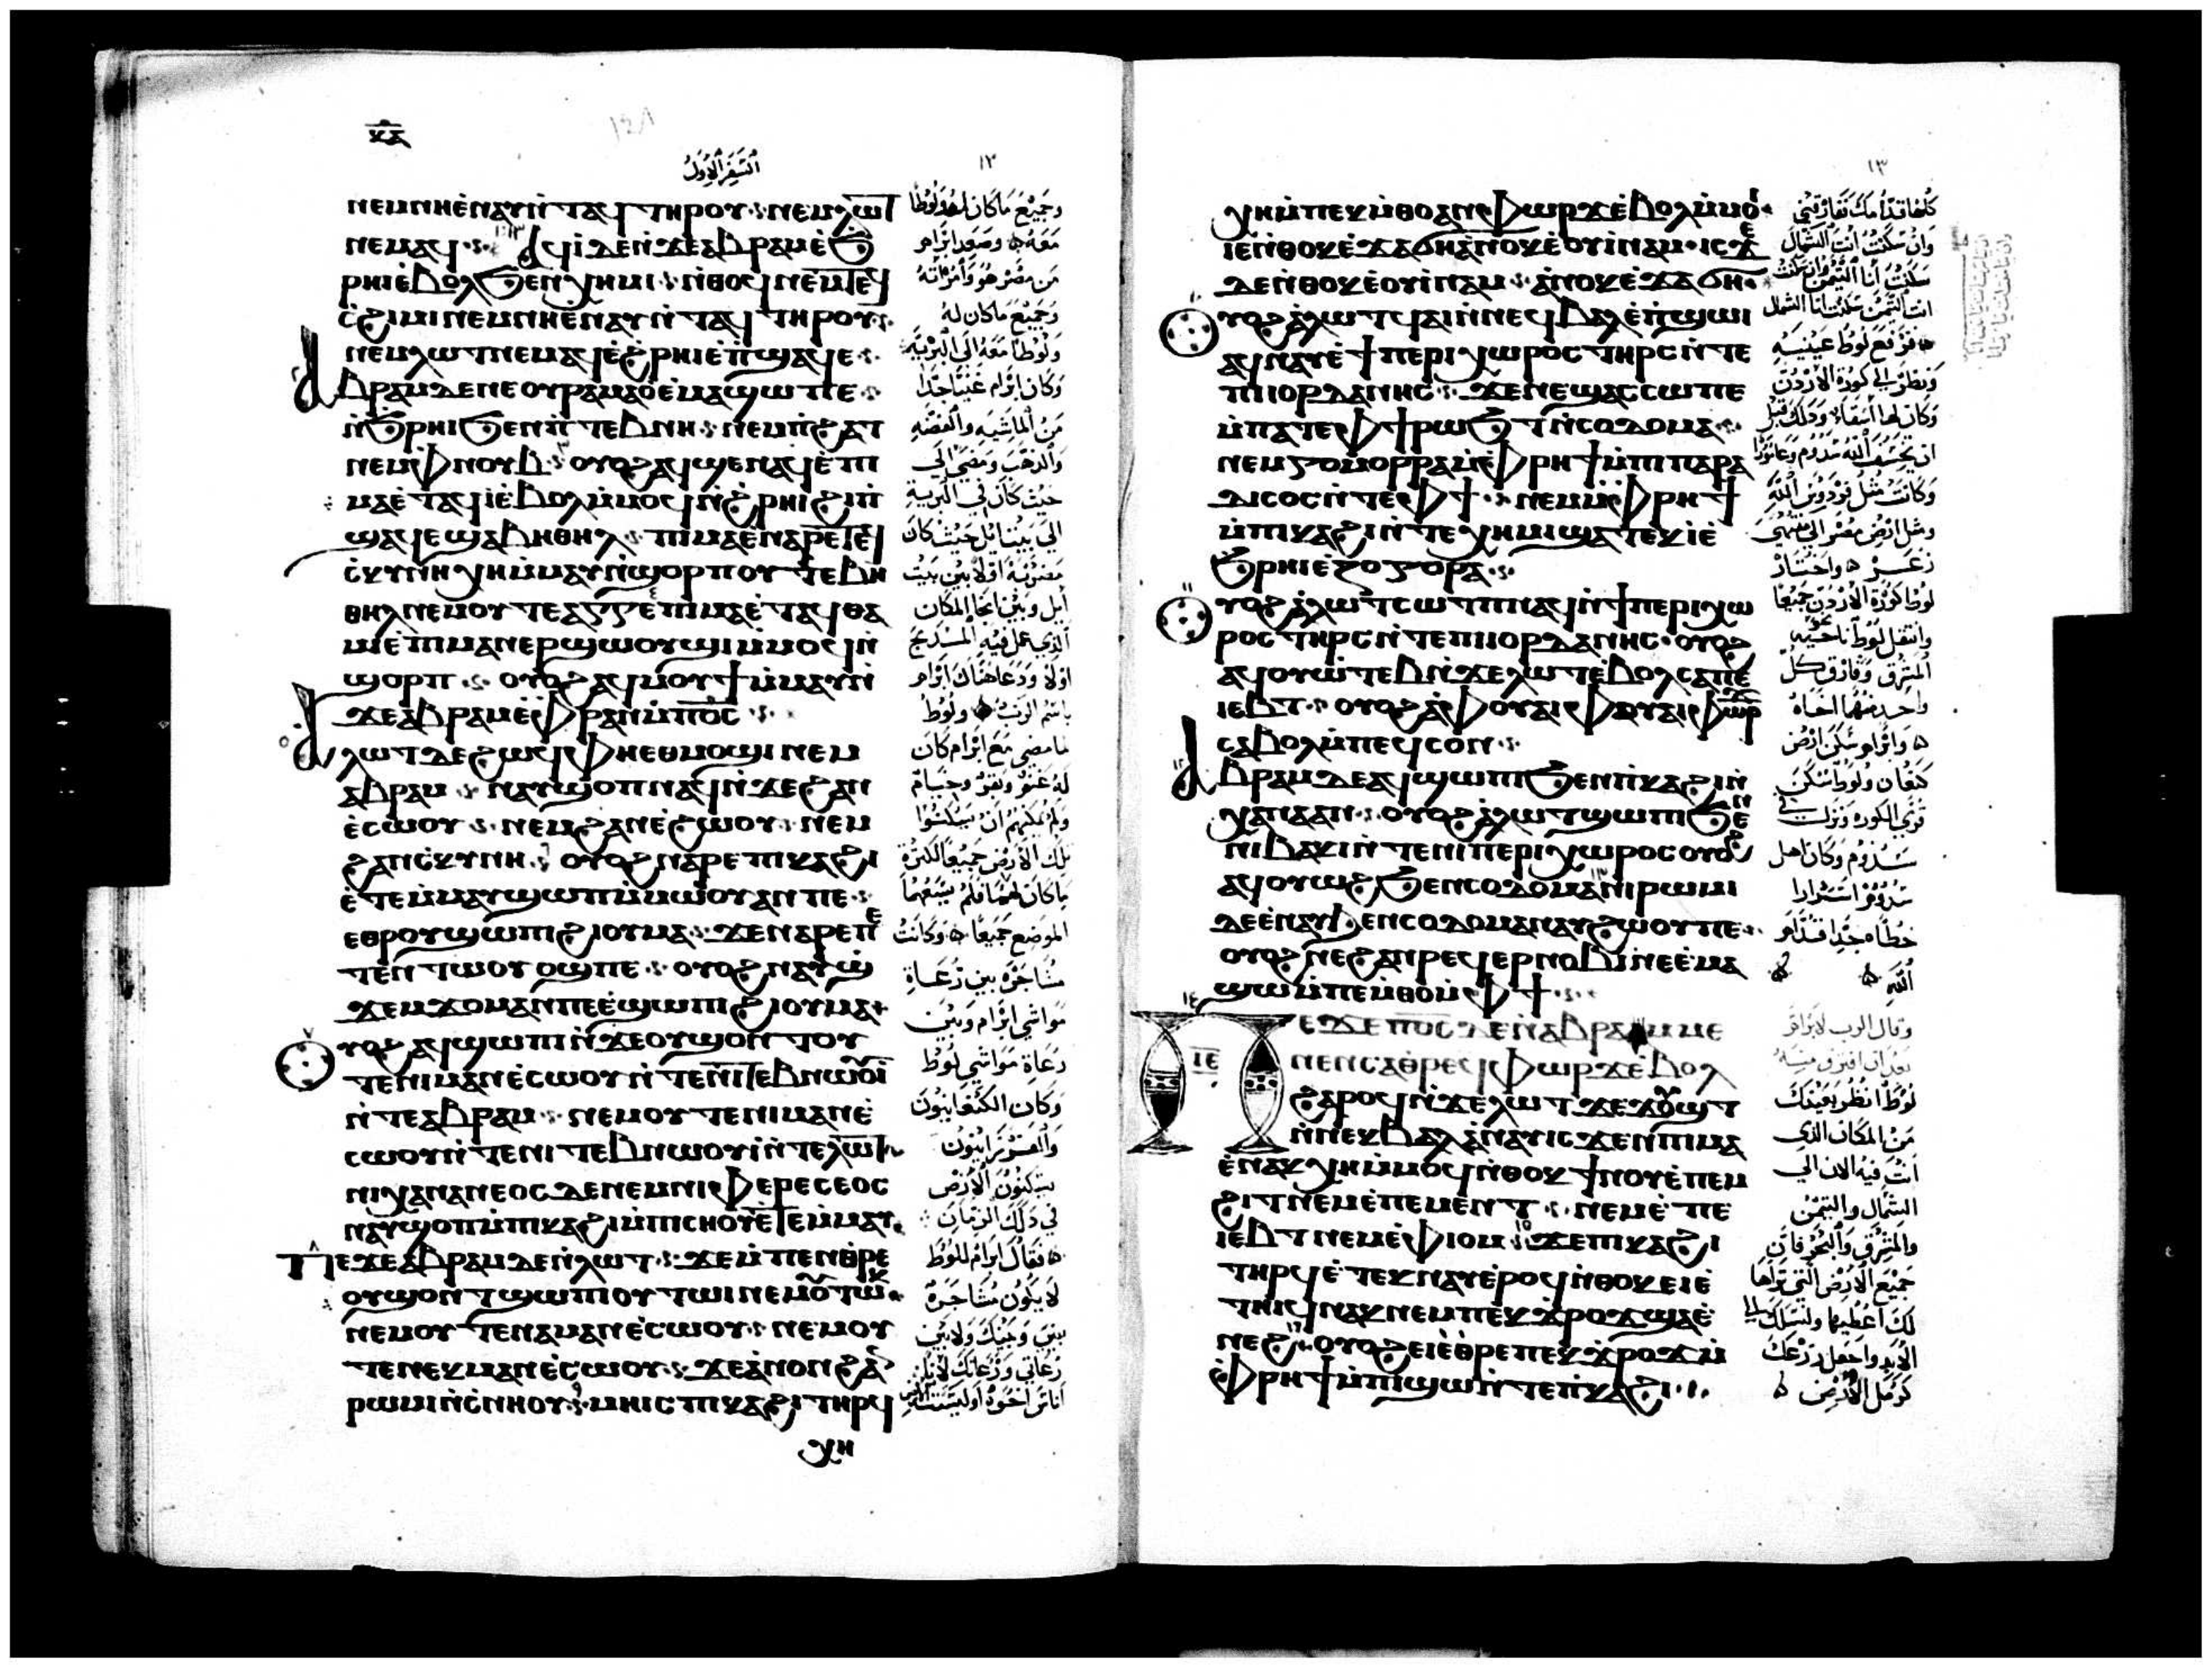 ⲕⲇ
السفر الاول
١٢
ⲛⲉⲙⲛⲏⲉⲛⲁⲩⲛ̀ⲧⲁϥⲧⲏⲣⲟⲩ ⲛⲉⲙⲗⲱⲧ
ⲛⲉⲙⲁϥ ⲁϥⲓ̀ⲇⲉⲛ̀ϫⲉⲁⲃⲣⲁⲙⲉ̀ϧ
ⲣⲏⲓⲉ̀ⲃⲟⲗϧⲉⲛⲭⲏⲙⲓ ⲛ̀ⲑⲟϥⲛⲉⲙⲧⲉϥ
ⲥ̀ϩⲓⲙⲓⲛⲉⲙⲛⲏⲉ̀ⲛⲁⲩⲛ̀ⲧⲁϥⲧⲏⲣⲟⲩ
ⲛⲉⲙⲗⲱⲧⲛⲉⲙⲁϥⲉ̀ϩ̀ⲣⲏⲓⲉ̀ⲡ̀ϣⲁϥⲉ
ⲁⲃⲣⲁⲙⲇⲉⲛⲉⲟⲩⲣⲁⲙⲁⲟ̀ⲉ̀ⲙⲁϣⲱⲡⲉ
ⲛ̀ϧⲣⲏⲓϧⲉⲛⲛ̀ⲧⲉⲃⲛⲏ ⲛⲉⲙⲡ̀ϩⲁⲧ
ⲛⲉⲙⲫⲛⲟⲩⲃ ⲟⲩⲟϩⲁϥϣⲉⲛⲁϥⲉ̀ⲡⲓ
ⲙⲁⲉ̀ⲧⲁϥⲓ̀ⲉ̀ⲃⲟⲗⲙ̀ⲙⲟϥⲛ̀ϩ̀ⲣⲏⲓϩⲓⲡ̀
ϣⲁϥⲉϣⲁⲃⲏⲑⲏⲗ ⲡⲓⲙⲁⲉⲛⲁⲣⲉⲧⲉϥ
ⲥ̀ⲕⲩⲛⲏⲭⲏⲙ̀ⲙⲁⲩⲛ̀ϣⲟⲣⲡⲟⲩⲧⲉⲃⲏ
ⲑⲏⲗⲛⲉⲙⲟⲩⲧⲉⲁⲅⲅⲉ̀ⲡⲓⲙⲁⲉ̀ⲧⲁϥⲑⲁ
ⲙⲓⲉ̀ⲡⲓⲙⲁⲛⲉⲣϣⲱⲟⲩϣⲓⲙ̀ⲙⲟϥⲛ̀
ϣⲟⲣⲡ ⲟⲩⲟϩⲁϥⲙⲟⲩϯⲙ̀ⲙⲁⲩⲛ̀
ϫⲉⲁⲃⲣⲁⲙⲉ̀ⲫⲣⲁⲛⲙ̀ⲡⲟ̅ⲥ̅
ⲗⲱⲧⲇⲉϩⲱϥⲫⲏⲉⲑⲙⲟϣⲓⲛⲉⲙ
ⲁⲃⲣⲁⲙ ⲛⲁⲩϣⲟⲡⲛⲁϥⲛ̀ϫⲉϩⲁⲛ
ⲉ̀ⲥⲱⲟⲩ ⲛⲉⲙϩⲁⲛⲉ̀ϩⲱⲟⲩ ⲛⲉⲙ
ϩⲁⲛⲥ̀ⲕⲩⲛⲏ ⲟⲩⲟϩⲛⲁⲣⲉⲡⲓⲕⲁϩⲓ
ⲉ̀ⲧⲉⲙ̀ⲙⲁⲩϣⲱⲡⲙ̀ⲙⲱⲟⲩⲁⲛⲡⲉ
ⲉⲑⲣⲟⲩϣⲱⲡⲓϩⲓⲟⲩⲙⲁ ϫⲉⲛⲁⲣⲉⲡⲉ
ⲧⲉⲛⲧⲱⲟⲩⲟϣⲡⲉ ⲟⲩⲟϩⲛⲁⲩϣ
ϫⲉⲙϫⲟⲙⲁⲛⲡⲉⲉ̀ϣⲱⲡⲓϩⲓⲟⲩⲙⲁ
ⲟⲩⲟϩⲁϥϣⲱⲡⲓⲛ̀ϫⲉⲟⲩϣⲟⲛⲧⲟⲩ
ⲧⲉⲛⲓⲙⲁⲛⲉ̀ⲥⲱⲟⲩⲛ̀ⲧⲉⲛⲓⲧⲉⲃⲛⲱⲟⲩⲓ̀
ⲛ̀ⲧⲉⲁⲃⲣⲁⲙ ⲛⲉⲙⲟⲩⲧⲉⲛⲓⲙⲁⲛⲉ̀
ⲥⲱⲟⲩⲛ̀ⲧⲉⲛⲓⲧⲉⲃⲛⲱⲟⲩⲓ̀ⲛ̀ⲧⲉⲗⲱⲧ
ⲛⲓⲭⲁⲛⲁⲛⲉⲟⲥⲇⲉⲛⲉⲙⲛⲓⲫⲉⲣⲉⲥⲉⲟⲥ
ⲛⲁⲩϣⲟⲡⲙ̀ⲡⲓⲕⲁϩⲓⲙ̀ⲡⲓⲥⲏⲟⲩⲉ̀ⲧⲉⲙ̀ⲙⲁⲩ
ⲡⲉϫⲉⲁⲃⲣⲁⲙⲇⲉⲛ̀ⲗⲱⲧ ϫⲉⲙ̀ⲡⲉⲛⲑ̀ⲣⲉ
ⲟⲩϣⲟⲛⲧϣⲱⲡⲓⲟⲩⲧⲱⲓⲛⲉⲙⲟⲩⲧⲱⲕ
ⲛⲉⲙⲟⲩⲧⲉⲛⲁⲙⲁⲛⲉ̀ⲥⲱⲟⲩ ⲛⲉⲙⲟⲩ
ⲧⲉⲛⲉⲕⲙⲁⲛⲉ̀ⲥⲱⲟⲩ ϫⲉⲁ̀ⲛⲟⲛϩⲁⲛ
ⲣⲱⲙⲓⲛ̀ⲥ̀ⲛⲏⲟⲩ ⲙⲏⲓⲥⲡⲓⲕⲁϩⲓⲧⲏⲣϥ
ⲭⲏ
وجميع ما كان له ولوطا
معه وصعد ابرام
من مصر هو وامراته
وجميع ما كان له
ولوطا معه الى البريه
وكان ابرام غنيا جدا
من الماشيه والفضه
والذهب ومضى الى
حيث كان في البرية
الى بيت ايل حيث كان
مضربه اولا بين بيت
ايل وبين اجا المكان
الذي عمل فيه المذبح
اولا ودعا هناك ابرام
باسم الرب ولوط
ما مضى مع ابرام كان
له غنم وبقر وخيام
ولم يمكنهم ان يسكنوا
تلك الارض جميعا لكثرة
ما كان لهما فلم يسعهما
الموضع جميعا وكانت
مشاجرة بين رعاة
مواشي ابرام وبين
رعاة مواشي لوط
وكان الكنعانيون
والفرزانيون
يسكنون الارض
في ذلك الزمان
فقال ابرام للوط
لا يكون مشاجرة
بيني وبينك ولا بين
رعاتي ورعاتك لاننا
اناس اخوة اوليست
١٣
ⲭⲏⲙ̀ⲡⲉⲕⲙ̀ⲑⲟⲁⲛ ⲫⲱⲣϫⲉ̀ⲃⲟⲗⲙ̀ⲙⲟ
ⲓⲉⲛ̀ⲑⲟⲕⲉ̀ϫⲁϭⲏⲁ̀ⲛⲟⲕⲉ̀ⲟⲩⲓ̀ⲛⲁⲙ ⲓⲥϫⲉ
ⲇⲉⲛ̀ⲑⲟⲕⲉ̀ⲟⲩⲓ̀ⲛⲁⲙ ⲁ̀ⲛⲟⲕⲉ̀ϫⲁϭⲏ
ⲟⲩⲟϩⲁ̀ⲗⲱⲧϥⲁⲓⲛ̀ⲛⲉϥⲃⲁⲗⲉ̀ⲡ̀ϣⲱⲓ
ⲁϥⲛⲁⲩⲉ̀ϯⲡⲉⲣⲓⲭⲱⲣⲟⲥⲧⲏⲣⲥⲛ̀ⲧⲉ
ⲡⲓⲓⲟⲣⲇⲁⲛⲏⲥ ϫⲉⲛⲉϣⲁⲥⲥⲱⲡⲉ
ⲙ̀ⲡⲁⲧⲉⲫϯⲣⲱϧⲧⲛ̀ⲥⲟⲇⲟⲙⲁ
ⲛⲉⲙⲅⲟⲙⲟⲣⲣⲁⲙ̀ⲫⲣⲏϯⲙ̀ⲡⲓⲡⲁⲣⲁ
ⲇⲓⲥⲟⲥⲛ̀ⲧⲉⲫϯ ⲛⲉⲙⲙ̀ⲫⲣⲏϯ
ⲙ̀ⲡⲓⲕⲁϩⲓⲛ̀ⲧⲉⲭⲏⲙⲓϣⲁⲧⲉⲕⲓ̀ⲉ̀
ϧⲣⲏⲓⲉ̀ⲍⲟⲅⲟⲣⲁ
ⲟⲩⲟϩⲁ̀ⲗⲱⲧⲥⲱⲧⲡⲛⲁϥⲛ̀ϯⲡⲉⲣⲓⲭⲱ
ⲣⲟⲥⲧⲏⲣⲥⲛ̀ⲧⲉⲡⲓⲓⲟⲣⲇⲁⲛⲏⲥ ⲟⲩⲟϩ
ⲁϥⲟⲩⲱ̀ⲧⲉⲃⲛ̀ϫⲉⲗⲱⲧⲉ̀ⲃⲟⲗⲥⲁⲡⲉ
ⲓⲉⲃⲧ ⲟⲩⲟϩⲁ̀ⲫⲟⲩⲁⲓⲫⲟⲩⲁⲓⲫⲱⲣϫ
ⲥⲁⲃⲟⲗⲙ̀ⲡⲉϥⲥⲟⲛ
ⲁⲃⲣⲁⲙⲇⲉⲁϥϣⲱⲡⲓϧⲉⲛⲡ̀ⲕⲁϩⲓⲛ̀
ⲭⲁⲛⲁⲁⲛ ⲟⲩⲟϩⲁ̀ⲗⲱⲧϣⲱⲡⲓϧⲉⲛ
ⲛⲓⲃⲁⲕⲓⲛ̀ⲧⲉⲛⲓⲡⲉⲣⲓⲭⲱⲣⲟⲥⲟⲩⲟϩ
ⲁϥⲟⲩⲱϩϧⲉⲛⲥⲟⲇⲟⲙⲁⲛⲓⲣⲱⲙⲓ
ⲇⲉⲉ̀ⲛⲁⲩϧⲉⲛⲥⲟⲇⲟⲙⲁⲛⲁⲩϩⲱⲟⲩⲡⲉ
ⲟⲩⲟϩⲛⲉϩⲁⲛⲣⲉϥⲉⲣⲛⲟⲃⲓⲛⲉⲉ̀ⲙⲁ
ϣⲱⲙ̀ⲡⲉⲙ̀ⲑⲟⲙ̀ⲫϯ
ⲡⲉϫⲉⲡⲟ̅ⲥ̅ⲇⲉⲛ̀ⲁⲃⲣⲁⲙ ⲙⲉ
ⲓⲉ
ⲛⲉⲛⲥⲁⲑ̀ⲣⲉϥⲫⲱⲣϫⲉ̀ⲃⲟⲗ
ϩⲁⲣⲟϥⲛ̀ϫⲉⲗⲱⲧ ϫⲉϫⲟⲩϣⲧ
ⲛ̀ⲛⲉⲕⲃⲁⲗⲁ̀ⲛⲁⲩⲓⲥϫⲉⲛⲡⲓⲙⲁ
ⲉ̀ⲛⲁⲕⲭⲏⲙ̀ⲙⲟϥⲛ̀ⲑⲟⲕϯⲛⲟⲩⲉ̀ⲡⲉⲙ
ϩⲓⲧⲛⲉⲙⲉ̀ⲡⲉⲙⲉⲛⲧ ⲛⲉⲙⲉ̀ⲡⲉ
ⲓⲉⲃⲧⲛⲉⲙⲉ̀ⲫⲓⲟⲙ ϫⲉⲡⲓⲕⲁϩⲓ
ⲧⲏⲣϥⲉ̀ⲧⲉⲕⲛⲁⲩⲉ̀ⲣⲟϥⲛ̀ⲑⲟⲕⲉⲓⲉ̀
ⲧⲏⲓϥⲛⲁⲕⲛⲉⲙⲡⲉⲕϫ̀ⲣⲟϫϣⲁⲉ̀
ⲛⲉϩ ⲟⲩⲟϩⲉⲓⲉ̀ⲑ̀ⲣⲉⲡⲉⲕϫ̀ⲣⲟϫⲙ̀
ⲫⲣⲏϯⲙ̀ⲡⲓϣⲱⲛ̀ⲧⲉⲡ̀ⲕⲁϩⲓ
كلها قدامك تفارقني
وان سكنت انت الشمال
سكنت انا التيمن وان سكنت
انت التيمن سكنت انا الشمال
فرفع لوط عينيه
ونظر الى كورة الاردن
وكان لها اسقاء وذلك قبل
ان يخسف الله سدوم وعامورا
وكانت مثل فردوس الله
ومثل ارض مصر الى منتهى
زغر واختار
لوط كورة الاردن جميعا
وانتقل لوط ناحية
المشرق وفارق كل
واحد منهما اخاه
وابرام سكن ارض
كنعان ولوط سكن
قرى الكوره ونزل في
سدوم وكان اهل
سدوم اشرارا
خطاه جدا قدام
الله
وقال الرب لابرام
بعد ان افترق منه
لوط انظر بعينك
من المكان الذي
انت فيه الان الى
الشمال والتيمن
والمشرق والبحر فان
جميع الارض التي تراها
لك اعطيها ولنسلك الى
الابد واجعل زرعك
كرمل الارض